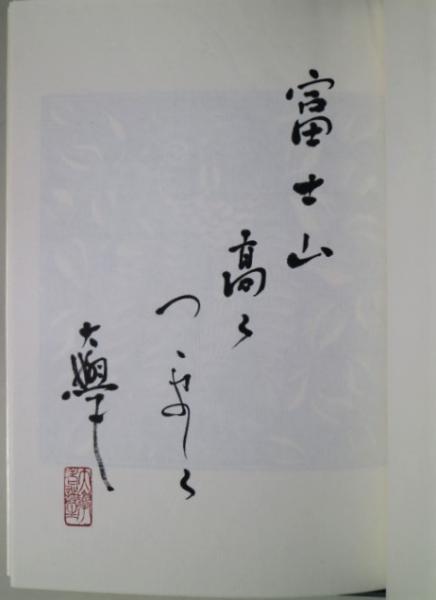 富士山
高く
つゝましく
大學